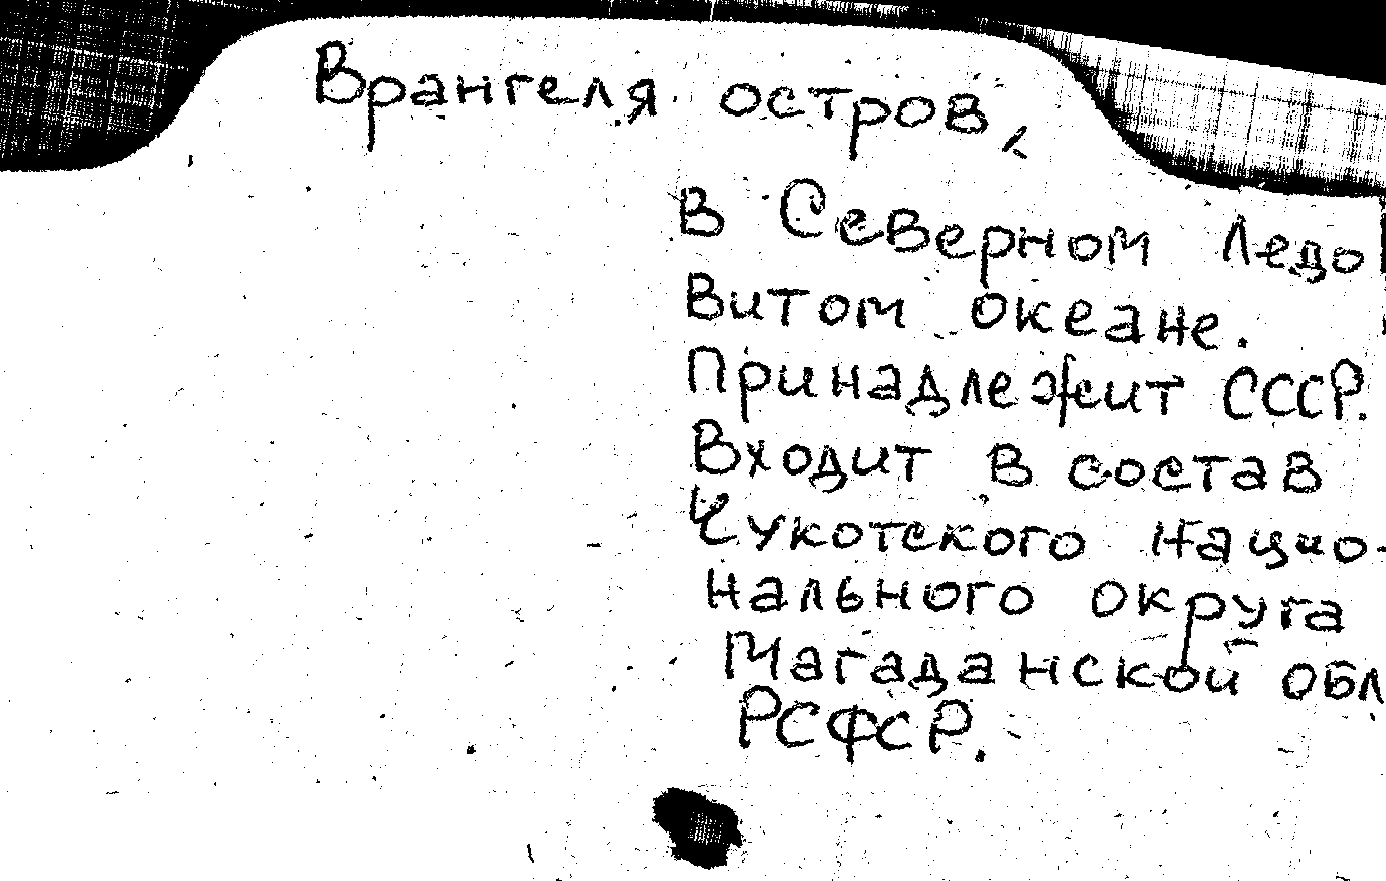 Врангеля остров,
В Северном Ледо
витом океане.
Принадлежит СССР.
Входит в состав
Чукотского нацио-
нального округа
Магаданской обл
РСФСР.